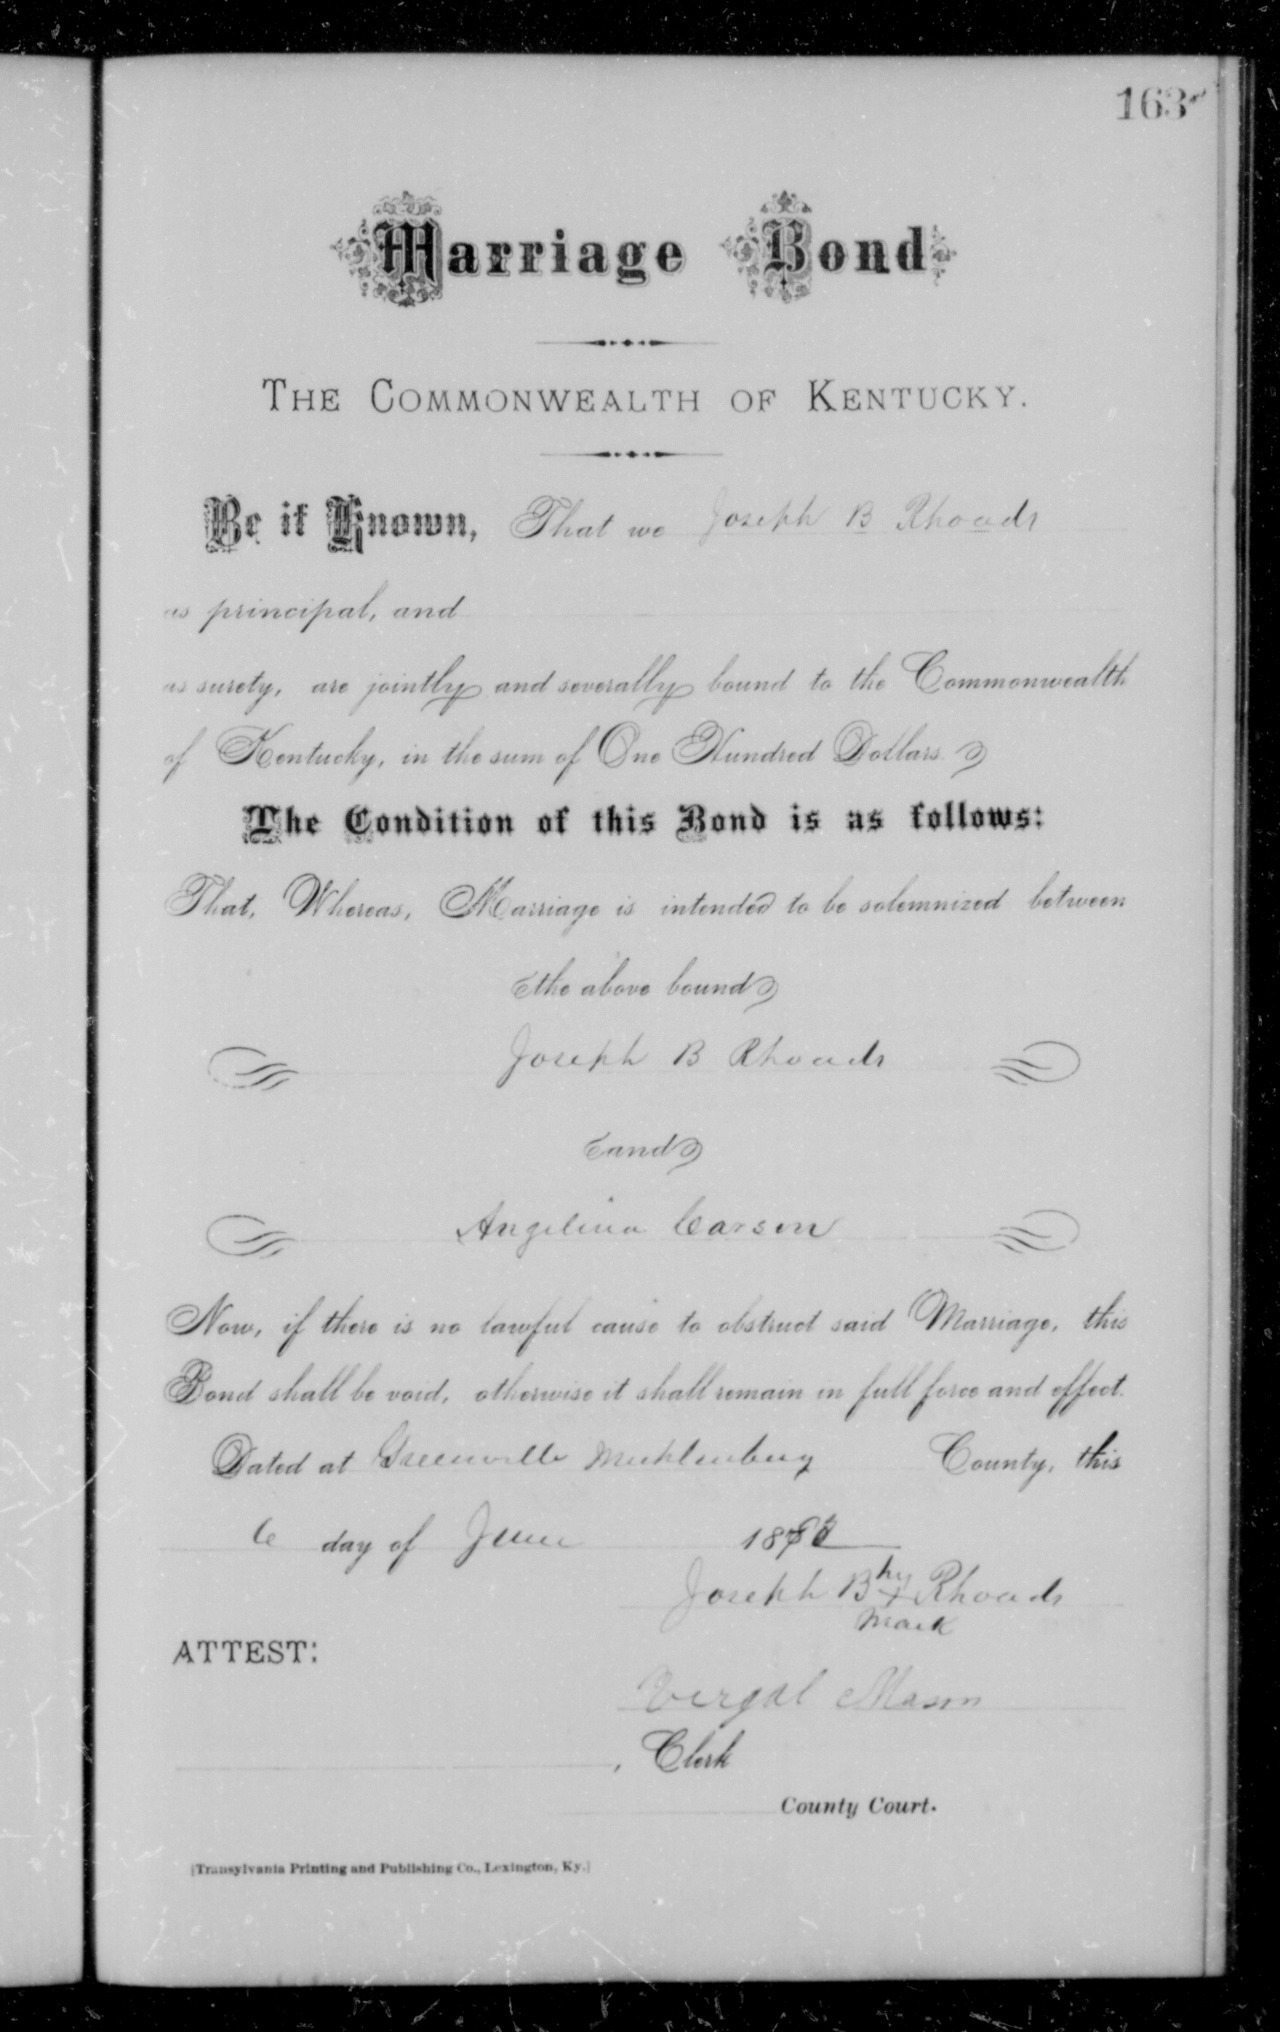 163
Marriage Bond
THE COMMONWEALTH OF KENTUCKY.
Be it Known, That we Joseph B Rhoads
as principal, and
as surety, are jointly and severally bound to the Commonwealth
of Kentucky, in the sum of One Hundred Dollars.
The Condition of this Bond is as follows:
That, Whereas, Marriage is intended to be solemnized between
the above bound
Joseph B Rhoads
and
Angelina Carson
Now, if there is no lawful cause to obstruct said Marriage, this
Bond shall be void, otherwise it shall remain in full force and effect.
Dated at Greenville Muhlenburg County, this
6 day of June 188
Joseph B his x Rhoads
mark
ATTEST:
Vergal Mason
, Clerk
County Court.
[Transylvania Printing and Publishing Co., Lexington, Ky.]